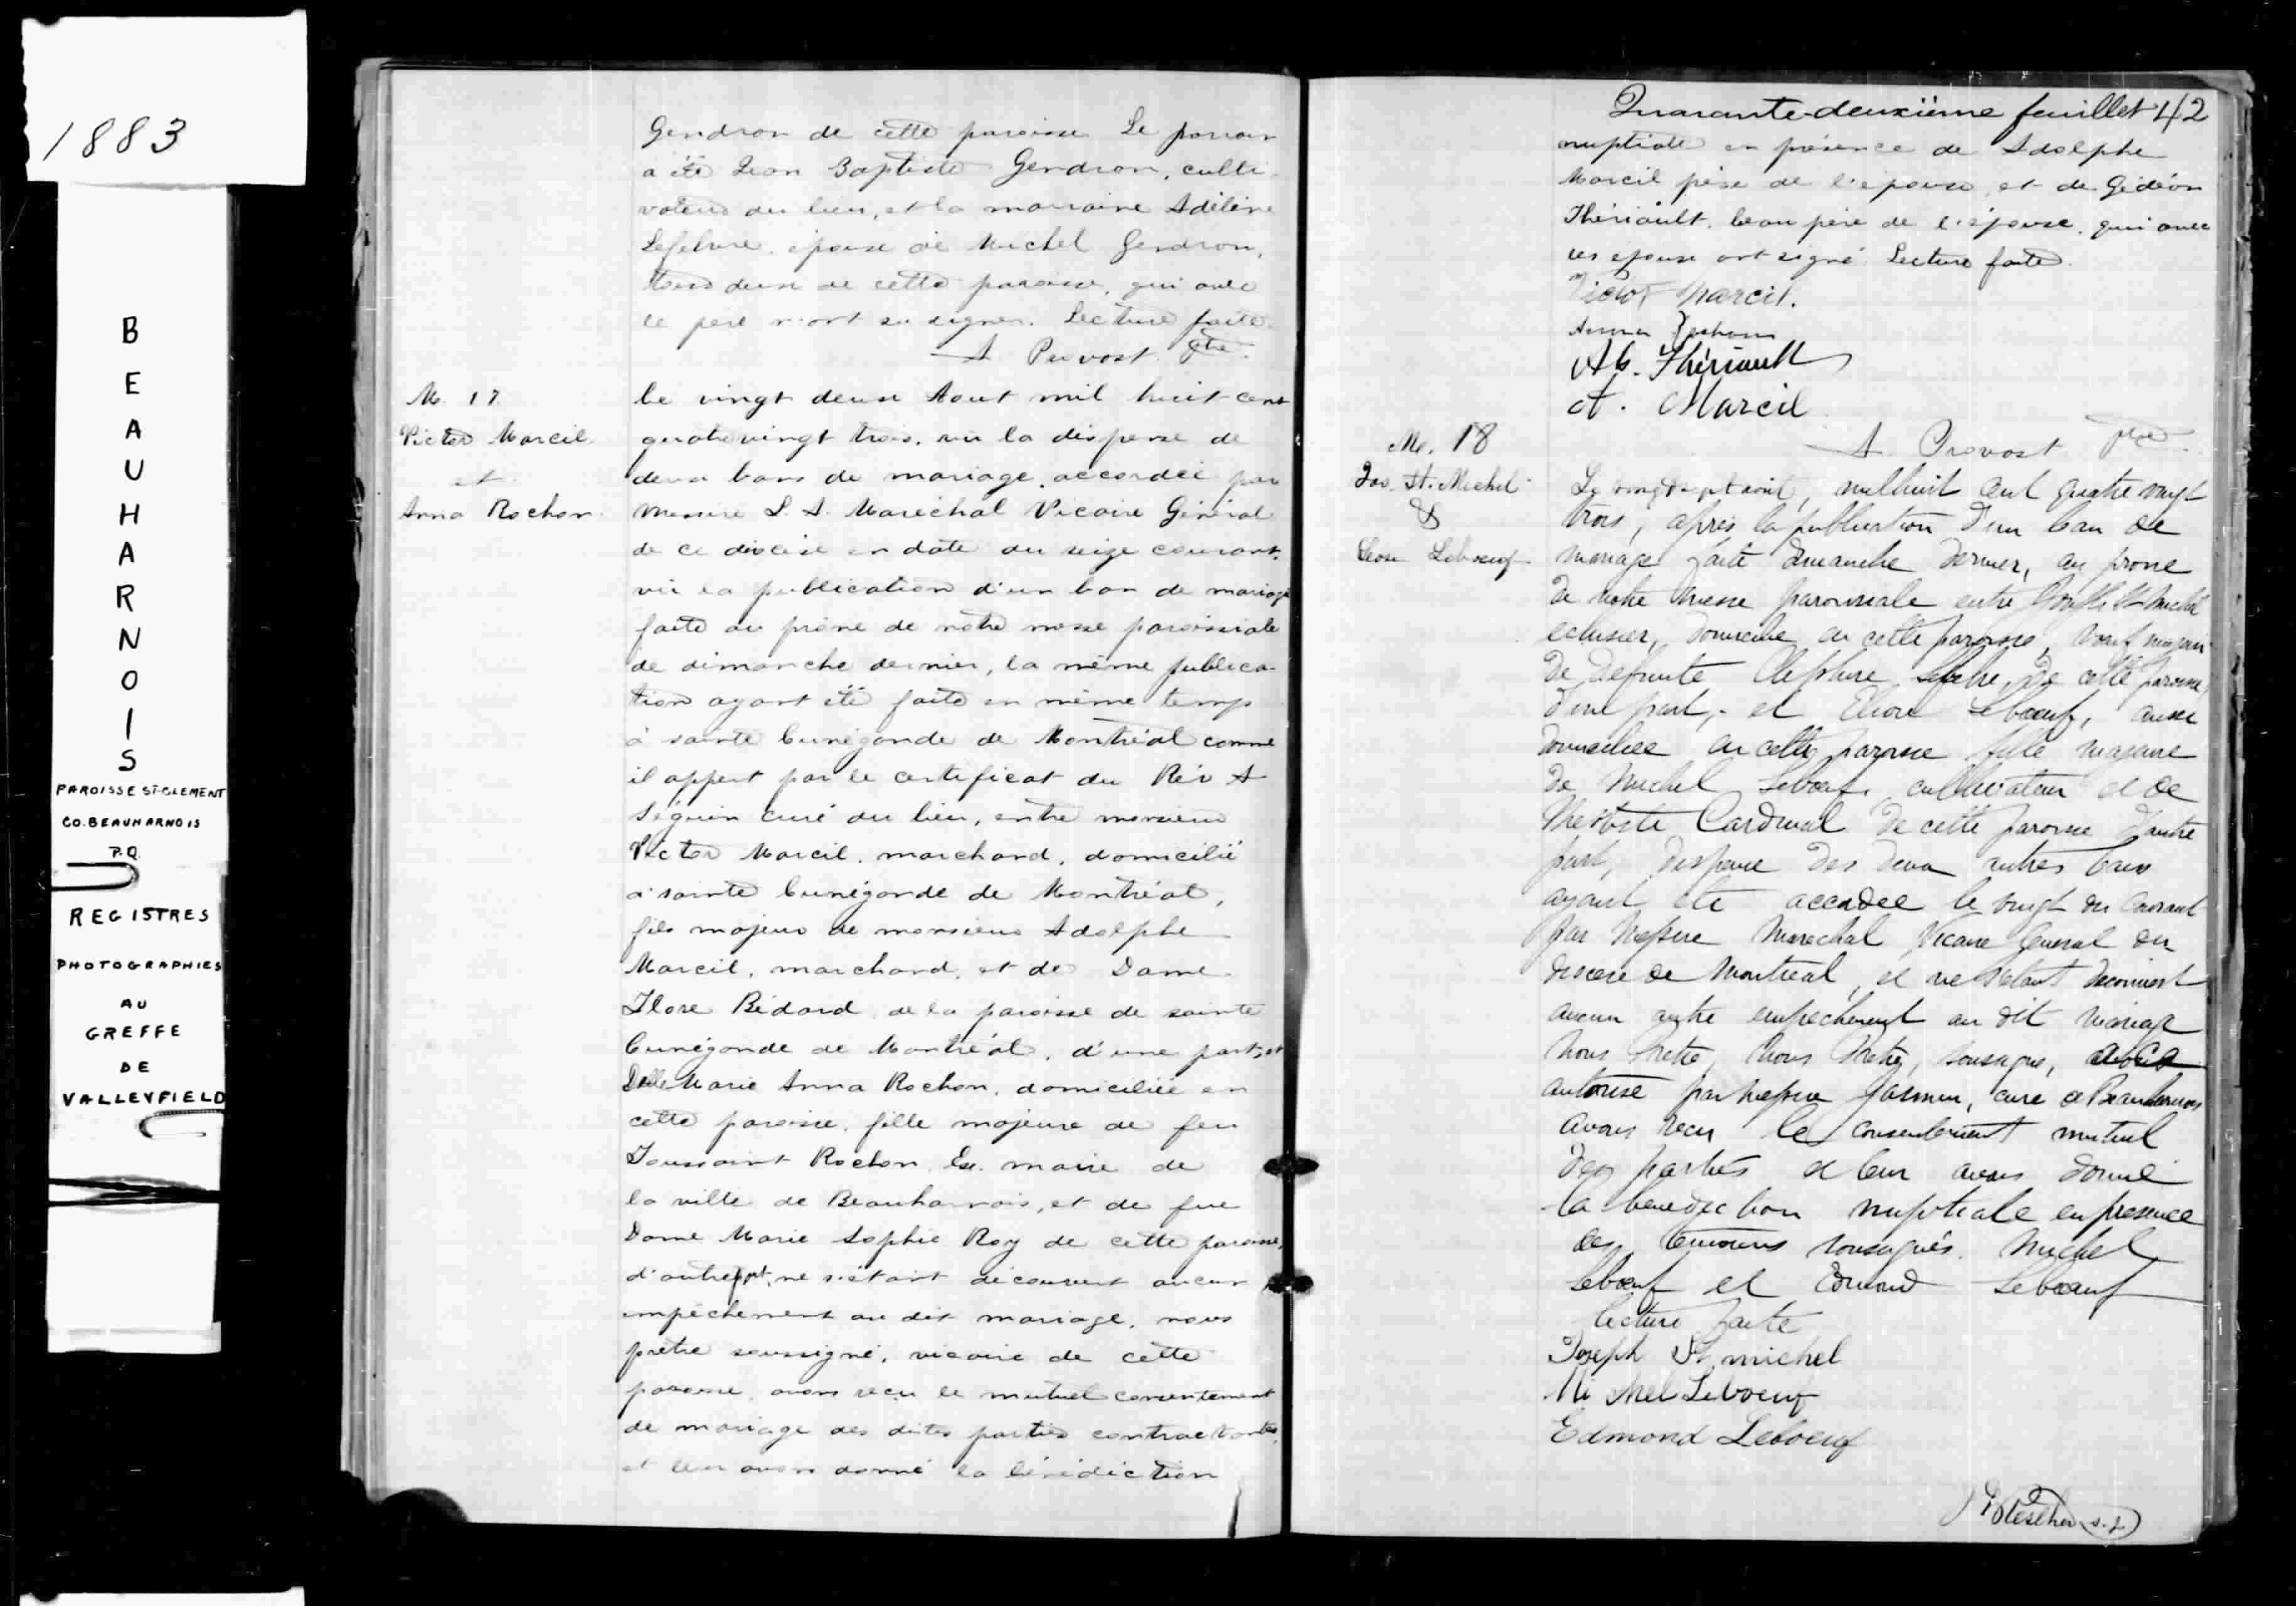 1883
BEAUHARNOIS
PAROISSE ST-CLEMENT
CO. BEAUHARNOIS
P.Q.
REGISTRES
PHOTOGRAPHIES
AU
GREFFE
DE
VALLEYFIELD
Gendron de cette paroisse Le parrain
a été Jean Baptiste Gendron, culti-
vateur du lieu, et la marraine Adéline
Lefebvre, épouse de Michel Gendron,
tous deux de cette paroisse, qui avec
le père n'ont su signer. Lecture faite.
A Provost Ptre.
M. 17.
Victor Marcil.
et
Anna Rochon.
Le vingt deux Aout mil huit cent
quatrevingt trois, vu la dispense de
deux bans de mariage, accordée par
Messire L. A. Maréchal Vicaire Général
de ce diocèse en date du seize courant,
vu la publication d'un ban de mariage
faite au prône de notre messe paroissiale
de dimanche dernier, la même publica-
tion ayant été faite en même temps
à sainte Cunégonde de Montréal comme
il appert par le certificat du Rév A
Séguin curé du lieu, entre monsieur
Victor Marcil, marchand, domicilié
à sainte Cunégonde de Montréal,
fils majeur de monsieur Adolphe
Marcil, marchand, et de Dame
Flore Bédard de la paroisse de sainte
Cunégonde de Montréal, d'une part, et
Delle Marie Anna Rochon, domiciliée en
cette paroisse, fille majeure de feu
Toussaint Rochon, Ex. maire de
la ville de Beauharnois, et de feue
Dame Marie Sophie Roy de cette paroisse,
d'autre part, ne s'étant découvert aucun
empêchement au dit mariage, nous
prêtre soussigné, vicaire de cette
paroisse, avons reçu le mutuel consentement
de mariage des dites parties contractantes,
et leur avons donné la bénédiction
Quarante-deuxième feuillet 42
nuptiale en présence de Adolphe
Marcil père de l'époux, et de Gédéon
Thériault, beau père de l'épouse, qui avec
les époux ont signé. Lecture faite.
Victor Marcil.
Anna Rochon
Thériault
A. Marcil
A. Provost Ptre
M. 18
Jos. St. Michel
&
Leboeuf
Le vingt-sept août, mil huit cent quatre vingt
trois, après la publication d'un ban de
mariage faite dimanche dernier, au prone
de notre messe paroissiale entre Joseph St Michel
eclusier, domicilié en cette paroisse, veuf majeur
de defunte Lefebvre, de cette paroisse,
d'une part, et Leboeuf, aussi
domiciliée en cette paroisse fille majeure
de Michel Leboeuf, cultivateur et de
Théotiste Cardinal de cette paroisse d'autre
part, dispense des deux autres bans
ayant ete accordee le vingt du courant
par Messire Marechal Vicaire General du
diocese de Montreal, et ne s'etant decouvert
aucun autre empechement au dit mariage
Nous Pretre, Nous Pretre, soussigne,
autorise par Messire Jasmin, curé de Beauharnois
avons reçu le consentement mutuel
des parties et leur avons donné
la benediction nuptiale en presence
des temoins soussignés. Michel
Leboeuf et Edmond Leboeuf
Lecture faite
Joseph St michel
Michel Leboeuf
Edmond Leboeuf
s.j.